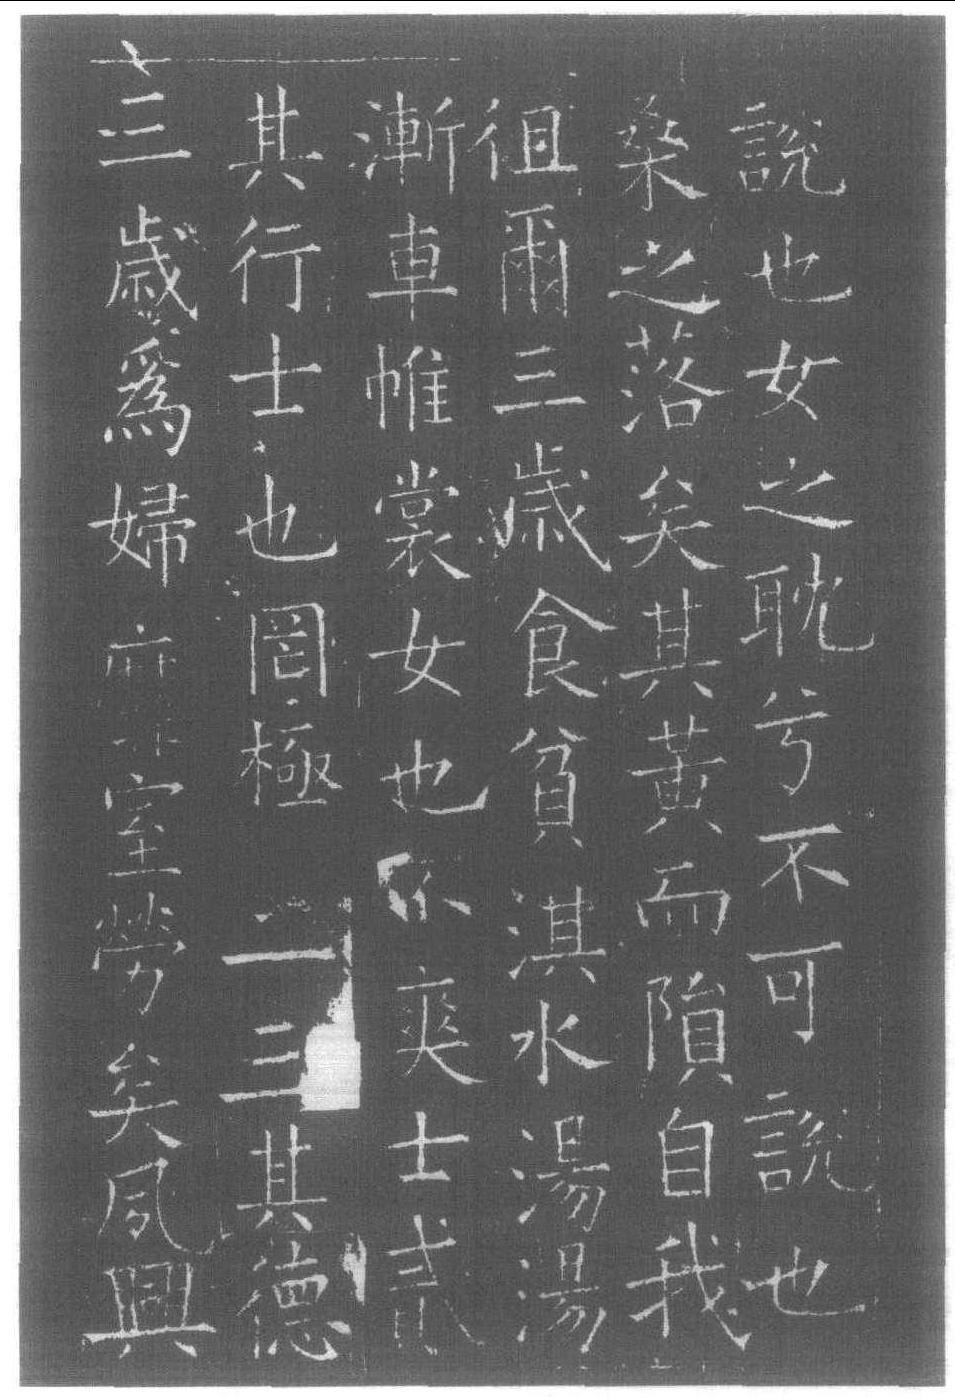 説也女之耽兮不可説也
桑之落矣其黄而隕自我
徂爾三歳食貧淇水湯湯
漸車帷裳女也不爽士貳
其行士也罔極二三其德
三歳爲婦靡室勞矣夙興